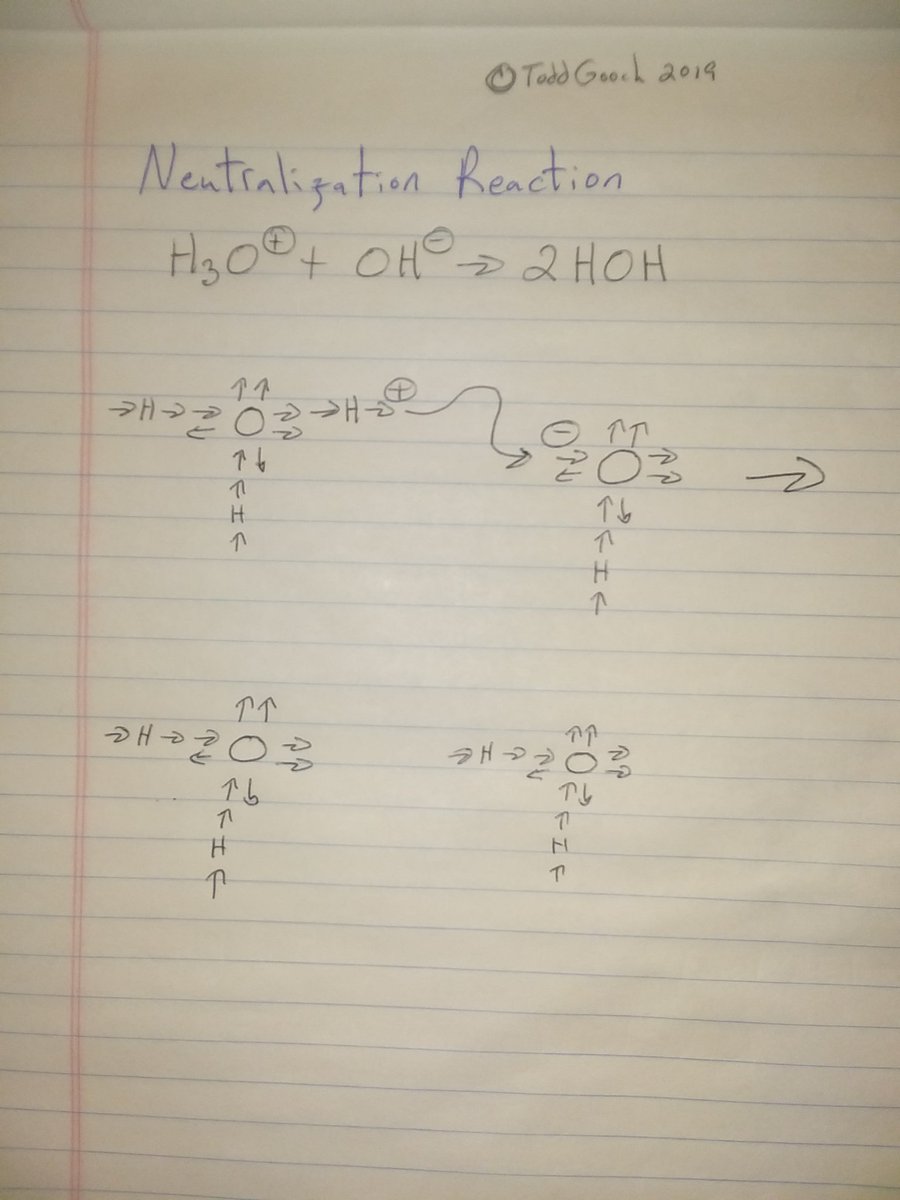 ©Todd Gooch 2019
Neutralization Reaction
H₃O⊕ + OH⊖ → 2HOH
↑↑
→H→ →
← O → →H→ ⊕
→
↑↓
↑
H
↑
⊖ ↑↑
→
← O →
→ →
↑↓
↑
H
↑
↑↑
→H→ →
← O →
→
↑↓
↑
H
↑
↑↑
→H→ →
← O →
→
↑↓
↑
H
↑